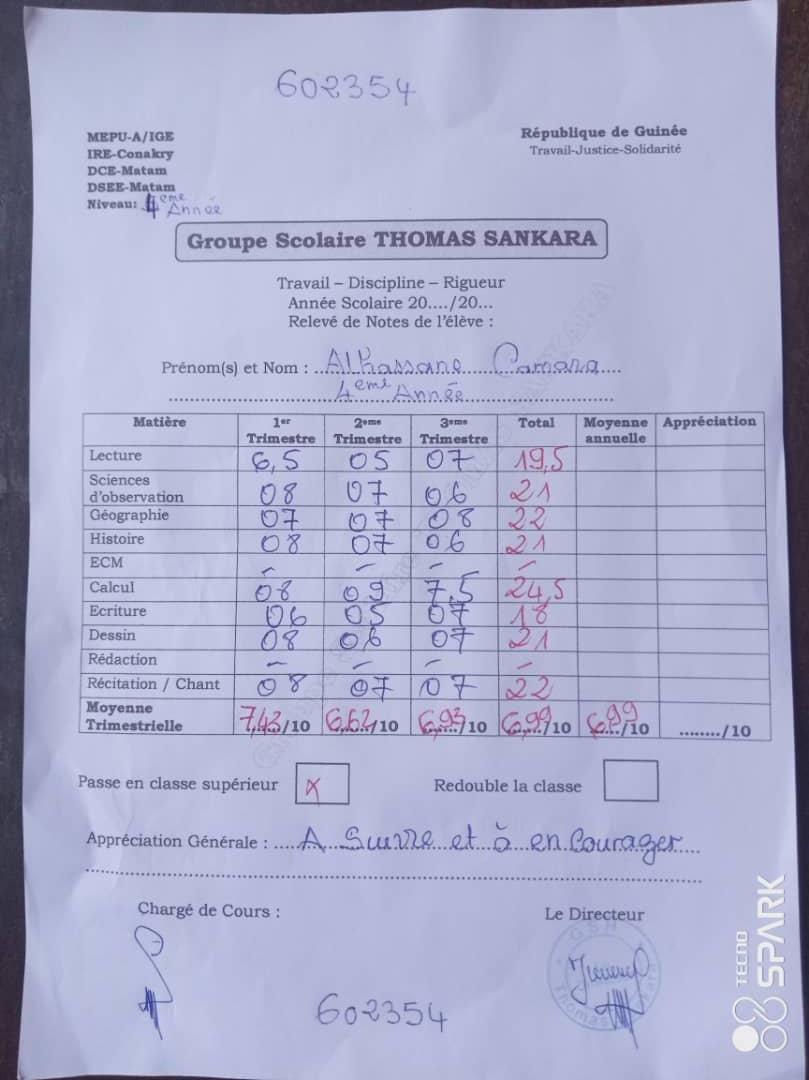 602354
MEPU-A/IGE
IRE-Conakry
DCE-Matam
DSEE-Matam
Niveau: 4eme Année
République de Guinée
Travail-Justice-Solidarité
Groupe Scolaire THOMAS SANKARA
Travail – Discipline – Rigueur
Année Scolaire 20..../20...
Relevé de Notes de l'élève :
Prénom(s) et Nom : ..Alhassane Camara....
4eme Année
Matière 1er Trimestre 2eme Trimestre 3eme Trimestre Total Moyenne annuelle Appréciation
Lecture 6,5 05 07 19,5
Sciences d'observation 08 07 06 21
Géographie 07 07 08 22
Histoire 08 07 06 21
ECM – – – –
Calcul 08 09 7,5 24,5
Ecriture 06 05 07 18
Dessin 08 06 07 21
Rédaction – – – –
Récitation / Chant 08 07 07 22
Moyenne Trimestrielle 7,43/10 6,62/10 6,93/10 6,99/10 6,99/10 ......../10
Passe en classe supérieur x Redouble la classe
Appréciation Générale : ....A Suivre et à encourager...
Chargé de Cours :
Le Directeur
602354
TECNO
SPARK